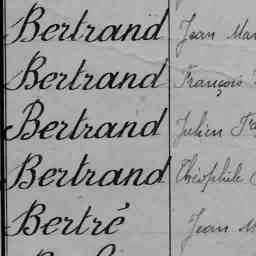 Bertrand Jean
Bertrand François
Bertrand Julien
Bertrand Théophile
Bertré Jean